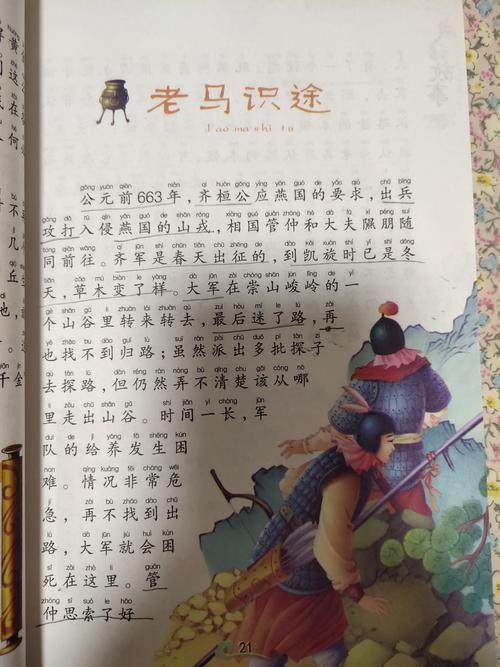 老马识途
lǎo mǎ shí tú
公元前663年,齐桓公应燕国的要求,出兵
攻打入侵燕国的山戎,相国管仲和大夫隰朋随
同前往。齐军是春天出征的,到凯旋时已是冬
天,草木变了样。大军在崇山峻岭的一
个山谷里转来转去,最后迷了路,再
也找不到归路;虽然派出多批探子
去探路,但仍然弄不清楚该从哪
里走出山谷。时间一长,军
队的给养发生困
难。情况非常危
急,再不找到出
路,大军就会困
死在这里。管
仲思索了好
21